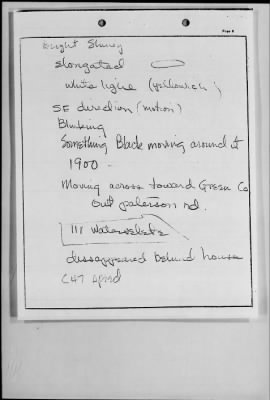 Page 2
Bright Shiney
elongated
white light (yellowish)
SE direction (motion)
Blinking
Something Black moving around it
1900 -
Moving across toward Green Co
out paterson rd.
111 Watervliet
dissappeared behind house
C47 speed